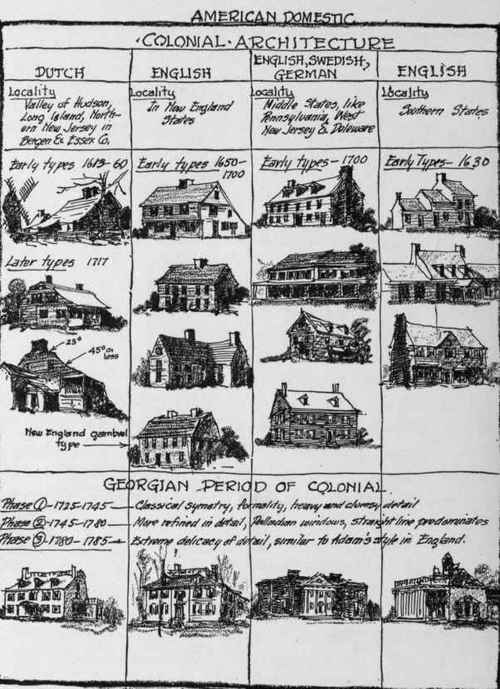 AMERICAN DOMESTIC
·COLONIAL·ARCHITECTURE
DUTCH
Locality
Valley of Hudson,
Long Island, North-
ern New Jersey in
Bergen & Essex Co.
Early types 1613-60
Later types 1717
23°
45° or
less
New England gambrel
type
ENGLISH
Locality
In New England
States
Early types 1650-
1700
ENGLISH, SWEDISH,
GERMAN
Locality
Middle States, like
Pennsylvania, West
New Jersey & Deleware
Early types-1700
ENGLISH
Locality
Southern States
Early Types-1630
GEORGIAN PERIOD OF COLONIAL
Phase ①-1725-1745- Classical symetry, formality, heavy and clumsy detail
Phase ②-1745-1780- More refined in detail, Palladian windows, straight line predominates
Phase ③-1780-1785- Extreme delicacy of detail, similar to Adam's style in England.